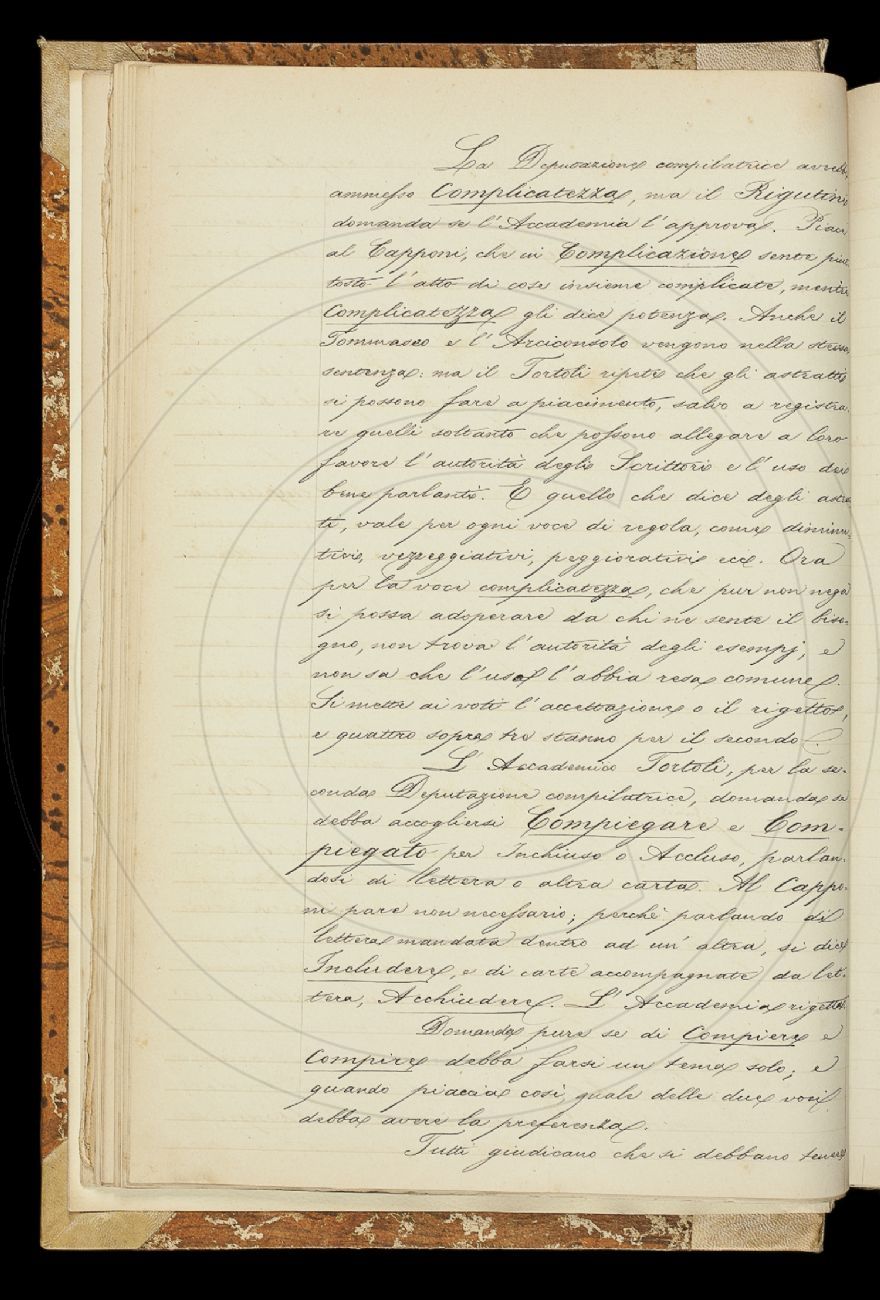 La Deputazione compilatrice avreb-
ammesso Complicatezza, ma il Rigutini
domanda se l'Accademia l'approva. Piace
al Capponi, che in Complicazione sente piut-
tosto l'atto di cose insieme complicate, mentre
Complicatezza gli dice potenza. Anche il
Tommaseo e l'Arciconsolo vengono nella stessa
sentenza: ma il Tortoli ripete che gli astratti
si possono fare a piacimento, salvo a registra-
re quelli soltanto che possono allegare a loro
favore l'autorità degli Scrittori e l'uso dei
bene parlanti. E quello che dice degli astrat-
ti, vale per ogni voce di regola, come diminu-
tivi, vezzeggiativi, peggiorativi ecc. Ora
per la voce complicatezza, che pur non nega
si possa adoperare da chi ne sente il biso-
gno, non trova l'autorità degli esempj, e
non sa che l'uso l'abbia resa comune.
Si mette ai voti l'accettazione o il rigetto,
e quattro sopra tre stanno per il secondo.
L'Accademico Tortoli, per la se-
conda Deputazione compilatrice, domanda se
debba accogliersi Compiegare e Com-
piegato per Inchiuso o Accluso, parlan-
dosi di lettera o altra carta. Al Cappo-
ni pare non necessario; perchè parlando di
lettera mandata dentro ad un'altra, si dice
Includere, e di carte accompagnate da let-
tera, Acchiudere. L'Accademia rigetta.
Domanda pure se di Compiere e
Compire debba farsi un tema solo; e
quando piaccia così, quale delle due voci
debba avere la preferenza.
Tutti giudicano che si debbano tenere